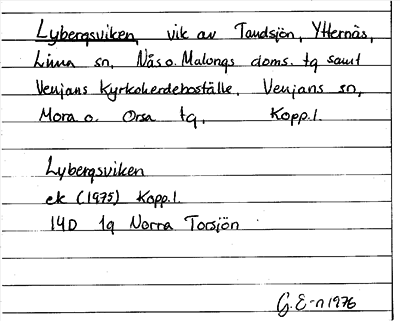 Lybergsviken, vik av Tandsjön, Ytternäs,
Lima sn, Nås o. Malungs doms. tg samt
Venjans Kyrkoherdeboställe, Venjans sn,
Mora o. Orsa tg, Kopp.l.
Lybergsviken
ek (1975) Kopp.l.
14D 1g Norra Torsjön
G.E-n 1976